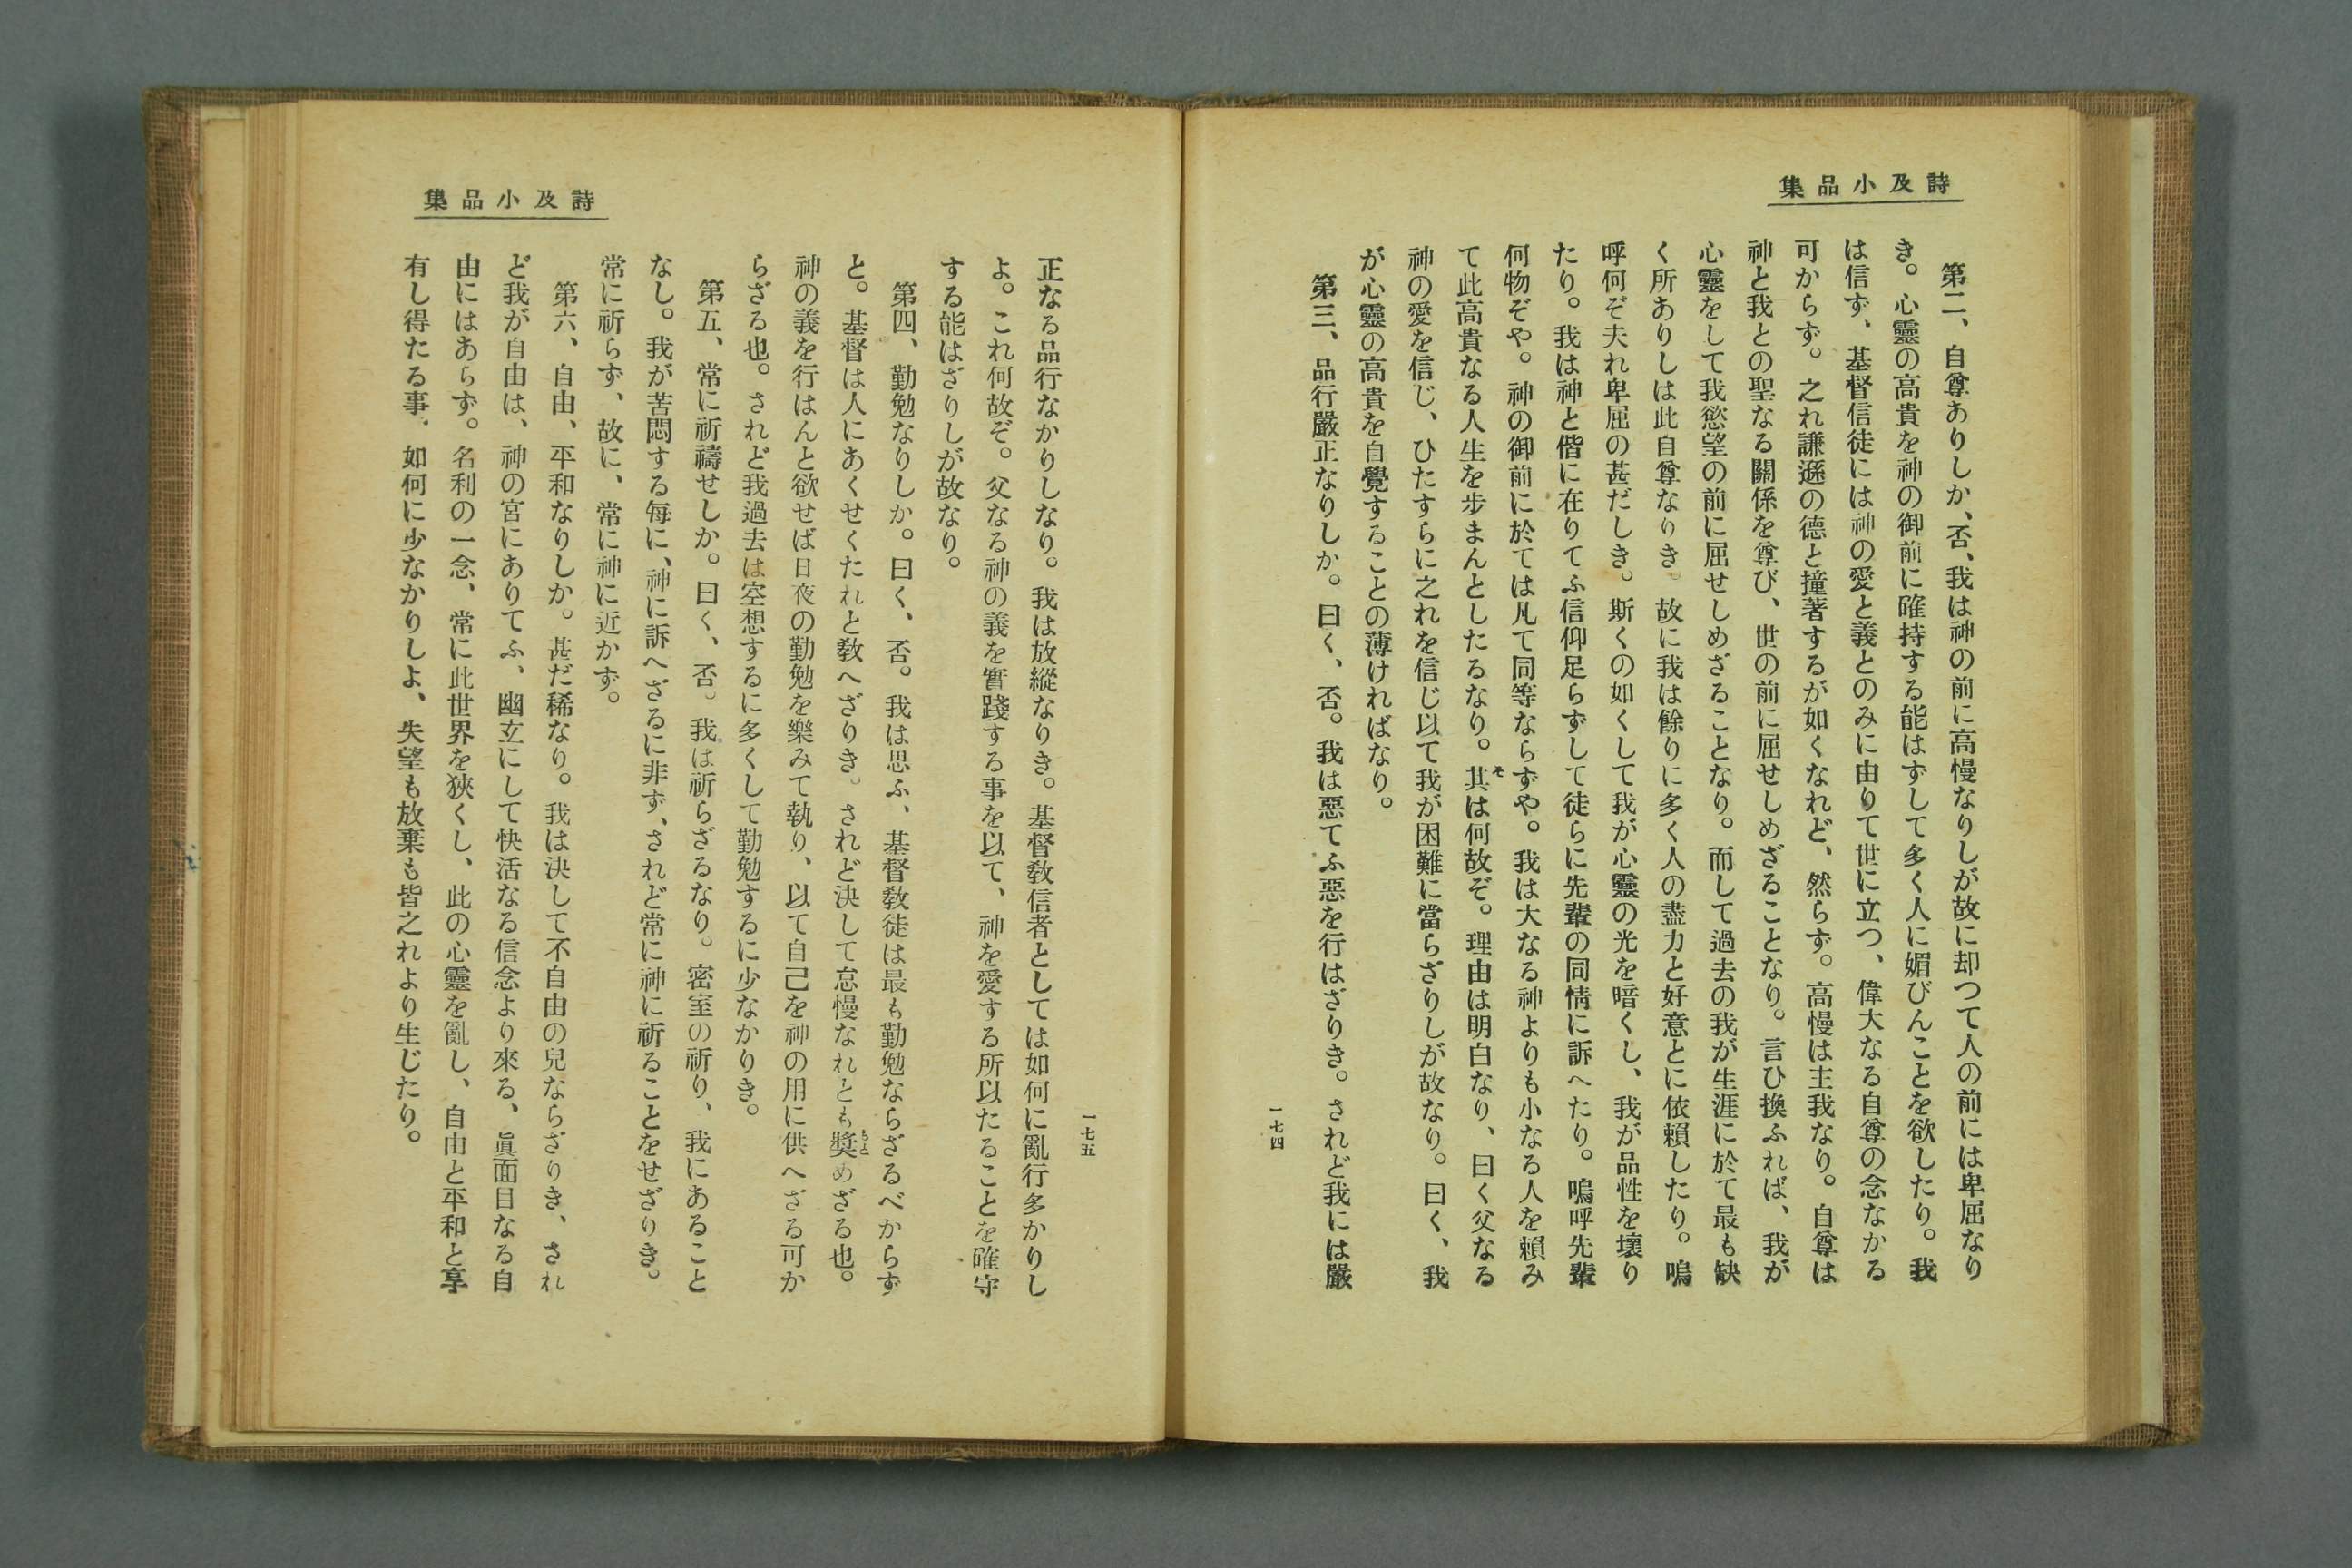 詩及小品集
第二、自尊ありしか、否、我は神の前に高慢なりしが故に却つて人の前には卑屈なり
き。心靈の高貴を神の御前に確持する能はずして多く人に媚びんことを欲したり。我
は信ず、基督信徒には神の愛と義とのみに由りて世に立つ、偉大なる自尊の念なかる
可からず。之れ謙遜の德と撞著するが如くなれど、然らず。高慢は主我なり。自尊は
神と我との聖なる關係を尊び、世の前に屈せしめざることなり。言ひ換ふれば、我が
心靈をして我慾望の前に屈せしめざることなり。而して過去の我が生涯に於て最も缺
く所ありしは此自尊なりき。故に我は餘りに多く人の盡力と好意とに依賴したり。嗚
呼何ぞ夫れ卑屈の甚だしき。斯くの如くして我が心靈の光を暗くし、我が品性を壞り
たり。我は神と偕に在りてふ信仰足らずして徒らに先輩の同情に訴へたり。嗚呼先輩
何物ぞや。神の御前に於ては凡て同等ならずや。我は大なる神よりも小なる人を賴み
て此高貴なる人生を步まんとしたるなり。其は何故ぞ。理由は明白なり、曰く父なる
神の愛を信じ、ひたすらに之れを信じ以て我が困難に當らざりしが故なり。曰く、我
が心靈の高貴を自覺することの薄ければなり。
第三、品行嚴正なりしか。曰く、否。我は惡てふ惡を行はざりき。されど我には嚴
一七四
詩及小品集
一七五
正なる品行なかりしなり。我は放縱なりき。基督敎信者としては如何に亂行多かりし
よ。これ何故ぞ。父なる神の義を實踐する事を以て、神を愛する所以たることを確守
する能はざりしが故なり。
第四、勤勉なりしか。曰く、否。我は思ふ、基督敎徒は最も勤勉ならざるべからず
と。基督は人にあくせくたれと敎へざりき。されど決して怠慢なれとも奬めざる也。
神の義を行はんと欲せば日夜の勤勉を樂みて執り、以て自己を神の用に供へざる可か
らざる也。されど我過去は空想するに多くして勤勉するに少なかりき。
第五、常に祈禱せしか。曰く、否。我は祈らざるなり。密室の祈り、我にあること
なし。我が苦悶する每に、神に訴へざるに非ず、されど常に神に祈ることをせざりき。
常に祈らず、故に、常に神に近かず。
第六、自由、平和なりしか。甚だ稀なり。我は決して不自由の兒ならざりき、され
ど我が自由は、神の宮にありてふ、幽玄にして快活なる信念より來る、眞面目なる自
由にはあらず。名利の一念、常に此世界を狹くし、此の心靈を亂し、自由と平和と享
有し得たる事、如何に少なかりしよ、失望も放棄も皆之れより生じたり。